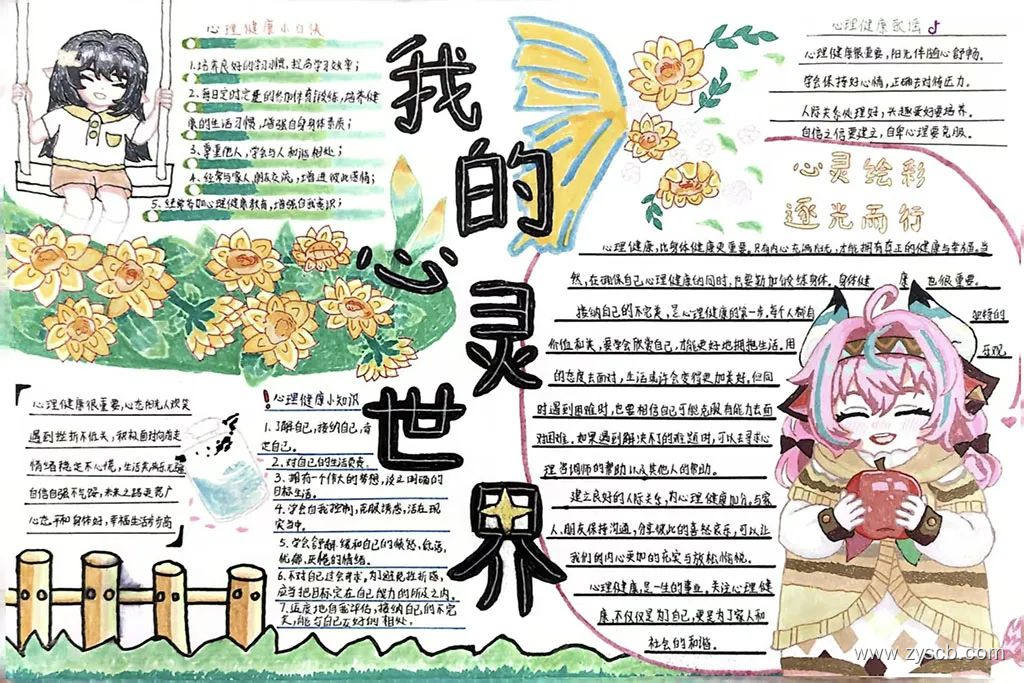 我的心灵世界
心理健康小百科
1.培养良好的学习习惯,提高学习效率;
2.每日定时定量的参加体育锻炼,培养健
康的生活习惯,增强自身身体素质;
3、尊重他人,学会与人和谐相处;
4、经常与家人、朋友交流,增进彼此感情;
5、经常参加心理健康教育,增强自我意识;
心理健康歌谣
心理健康很重要,阳光伴随心舒畅。
学会保持好心情,正确去对待压力。
人际关系处理好,兴趣爱好要培养。
自信之信要建立,自卑心理要克服。
心灵绘彩
逐光而行
心理健康,比身体健康更重要。只有内心充满阳光,才能拥有真正的健康与幸福。当
然,在确保自己心理健康的同时,也要勤加锻炼身体,身体健 康 也很重要。
接纳自己的不完美,是心理健康的第一步。每个人都有 独特的
价值和美,要学会欣赏自己,才能更好地拥抱生活。用 乐观
的态度去面对,生活或许会变得更加美好。但同
时遇到困难时,也要相信自己可能克服有能力去面
对困难。如果遇到解决不了的难题时,可以去寻求心
理咨询师的帮助以及其他人的帮助。
建立良好的人际关系,为心理健康加分。与家
人、朋友保持沟通,分享彼此的喜怒哀乐,可以让
我们的内心更加的充实与放松愉悦。
心理健康,是一生的事业。关注心理健
康,不仅仅是为了自己,更是为了家人和
社会的和谐。
心理健康很重要,心态阳光人欢笑
遇到挫折不低头,积极面对向前走
情绪稳定不心慌,生活充满乐无疆
自信自强不气馁,未来之路更宽广
心态平和身体好,幸福生活步步高
心理健康小知识
1.了解自己,接纳自己,肯
定自己。
2.对自己的生活负责。
3、拥有一个伟大的梦想,设立明确的
目标生活。
4.学会自我控制,克服诱惑,活在现
实当中。
5.学会舒解、缓和自己的愤怒、低落、
忧郁、厌倦的情绪。
6.不对自己过分苛求。为了避免挫折感,
应当把目标定在自己能力的所及之内。
7.适度地自我评估,接纳自己的不完
美,能与自己友好的相处。
www.zyscb.com